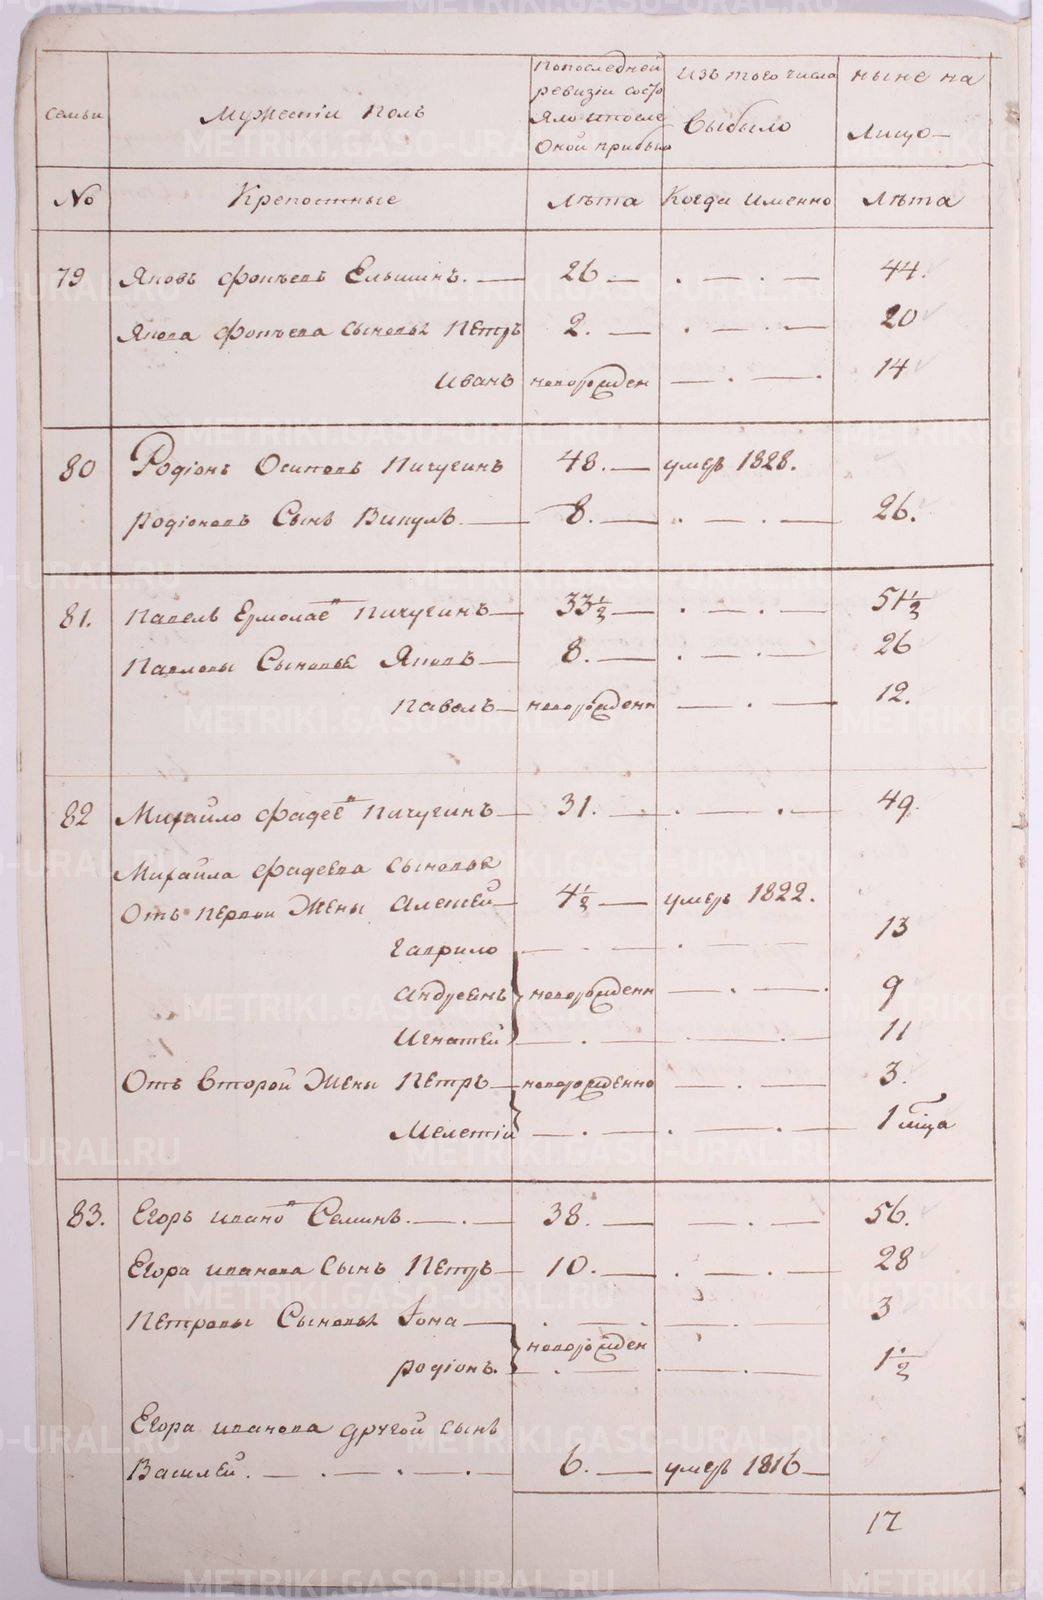 семьи
Мужескiи полъ
Попоследней
ревизiи состо
Яло ипосле
Оной прибыло
Изъ того числа
Выбыло
ныне на
Лицо
No
Крепостные
Лѣта
Когда Именно
Лѣта
79 Яковъ фокѣевъ Елькинъ. 26 44.
Якова фокѣева сыновья Петръ 2. 20
Иванъ новорожден 14
80 Родiонъ Осиповъ Пичугинъ 48. умеръ 1828.
Родiоновъ Сынъ Викулъ 8. 26.
81. Павелъ Ермолаев Пичугинъ 33½ 51½
Павловы Сыновья Яковъ 8. 26
Павелъ новорожденн 12.
82 Михайло фадеев Пичугинъ 31. 49.
Михайла фадеева сыновья
Отъ первой Жены Алексей 4½ умеръ 1822.
Гаврило 13
Андреянъ новорожденн 9
Игнатей 11
Отъ Второй Жены Петръ новорожденно 3.
Мелетiй 1 мѣца
83. Егоръ ивано Семинъ. 38. 56.
Егора иванова Сынъ Петръ 10. 28
Петровы Сыновья Iона 3
новорожден
родiонъ. 1½
Егора иванова другой сынъ
Василей. 6. умеръ 1816
17
METRIKI.GASO-URAL.RU